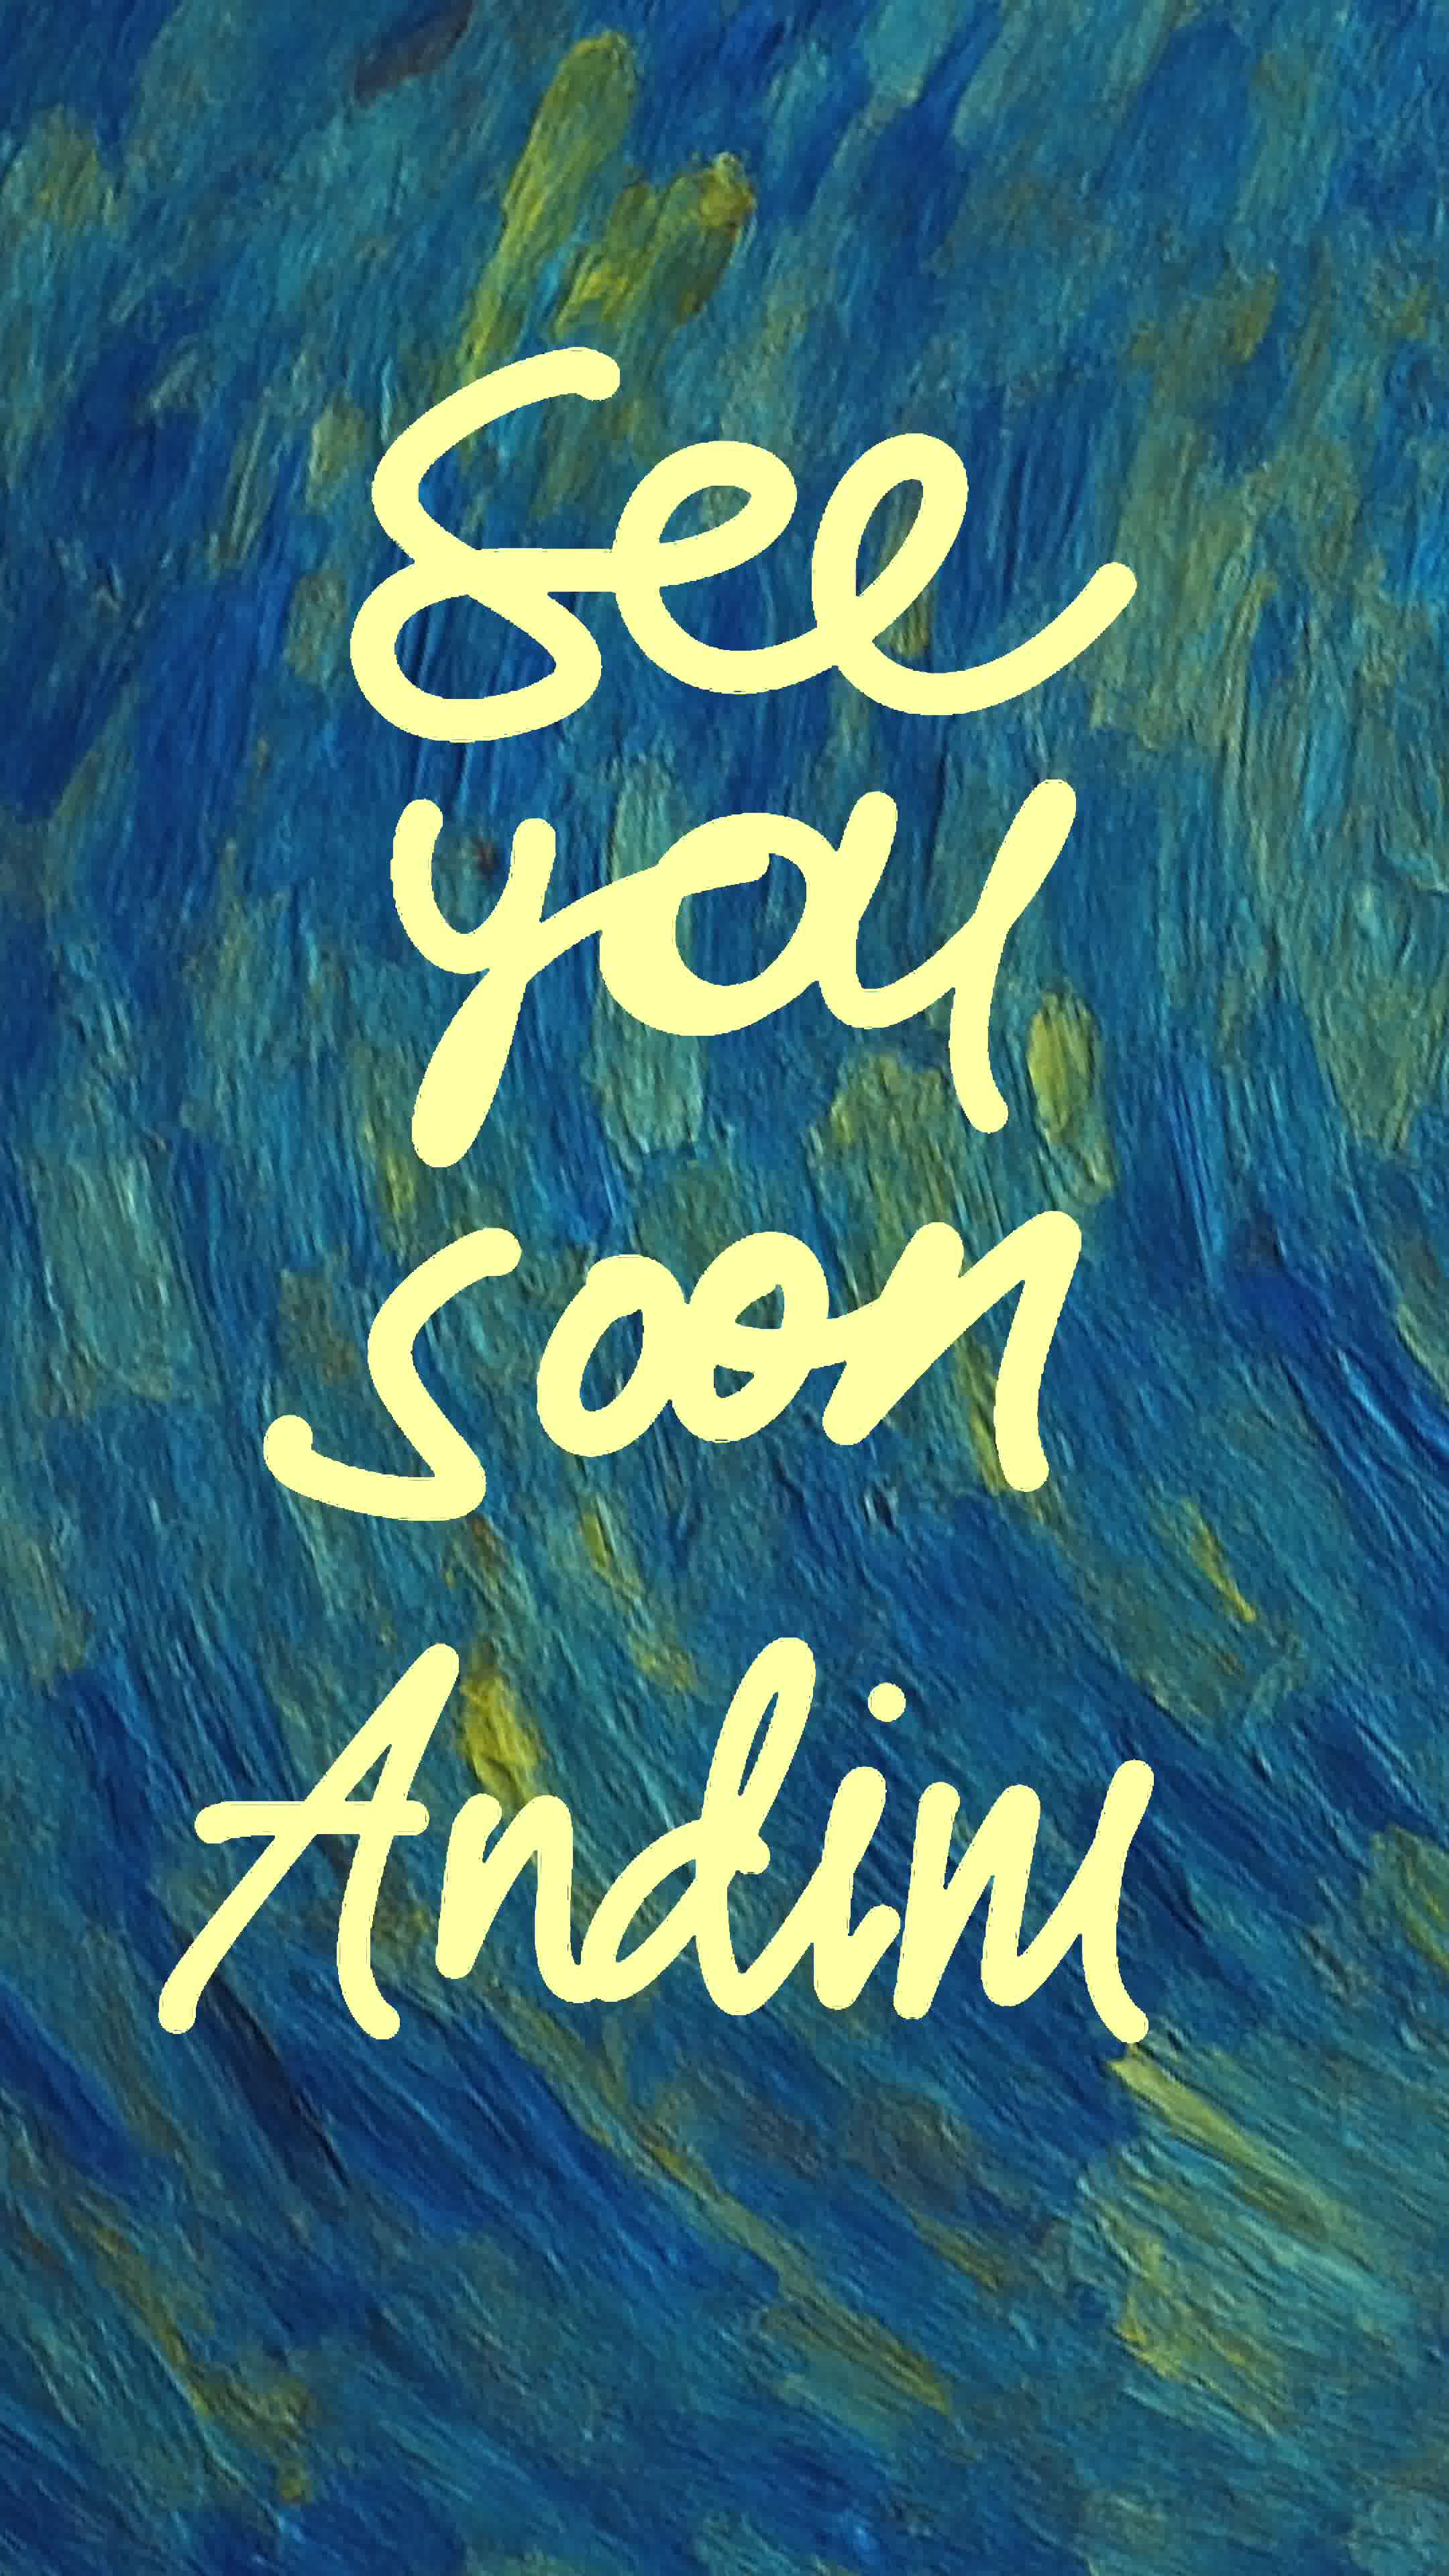 See
you
soon
Andim